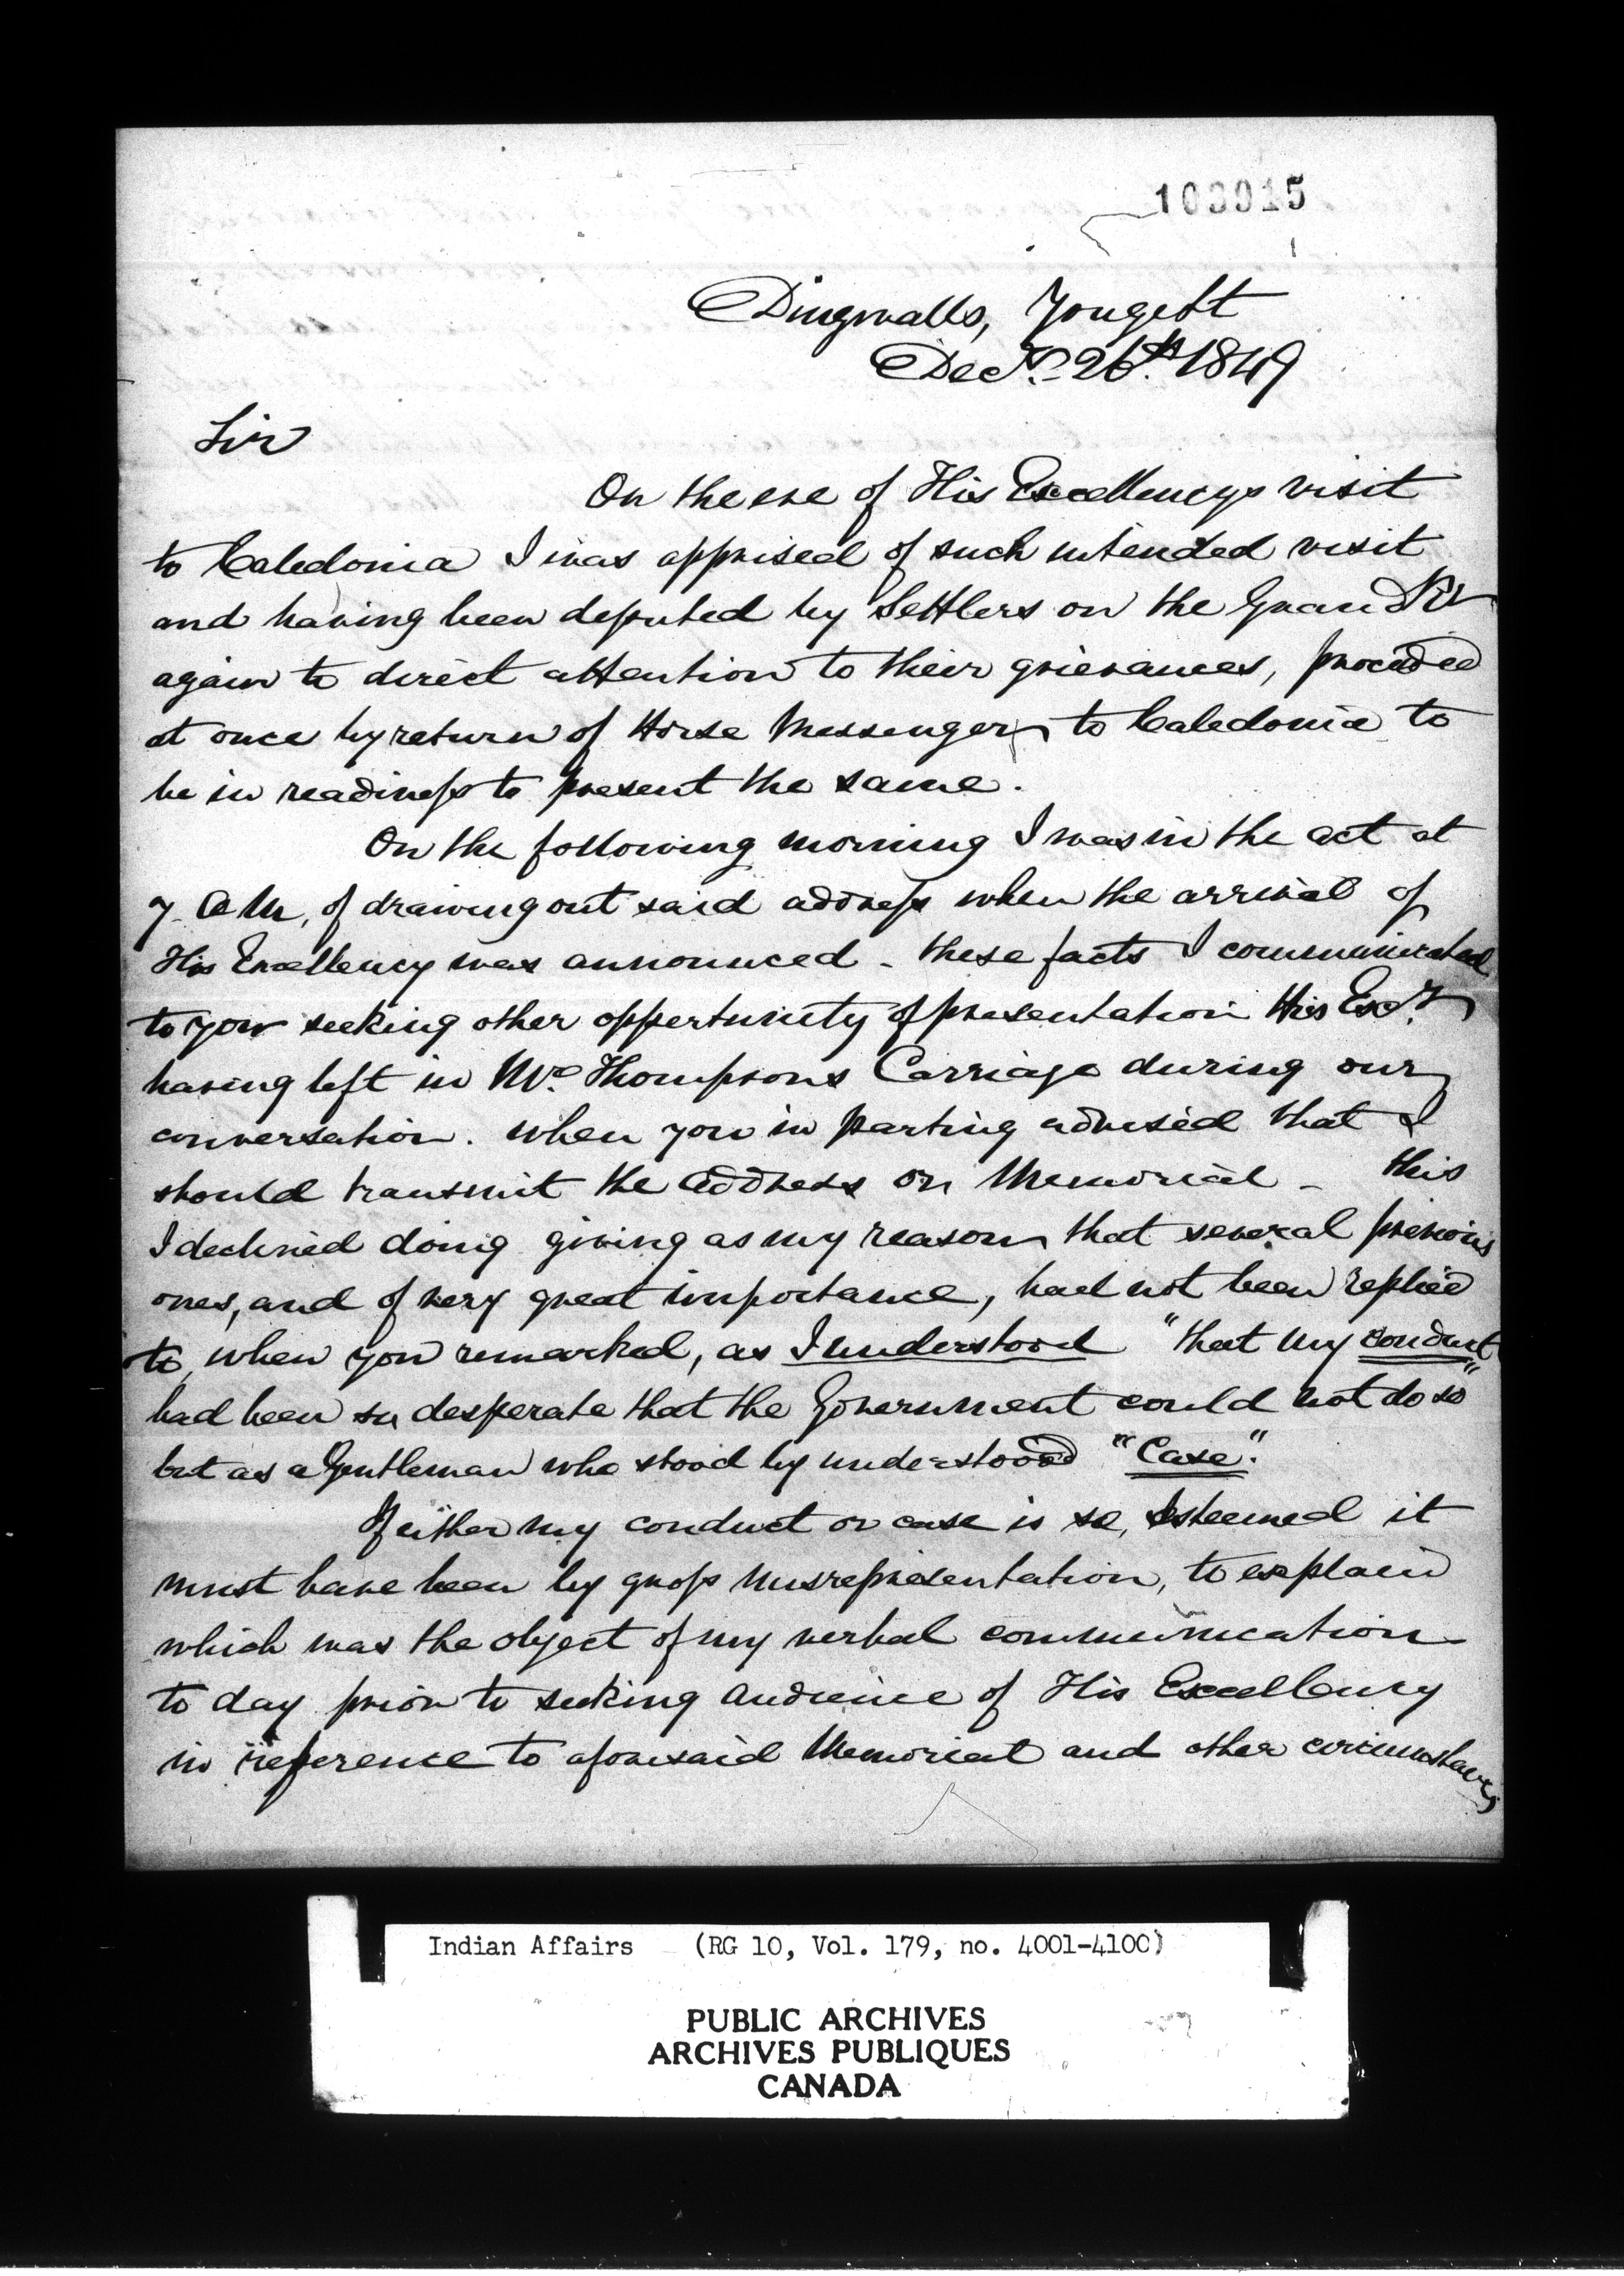 103915
Dingwalls, Yonge St
Decr. 26th. 1849
Sir
On the eve of His Excellencys visit
to Caledonia I was apprised of such intended visit
and having been deputed by Settlers on the Grand Rr
again to direct attention to their grievances, proceeded
at once by return of Horse Messenger to Caledonia to
be in readiness to present the same.
On the following morning I was in the act at
7 AM, of drawing out said address when the arrival of
His Excellency was announced - these facts I communicated
to you seeking other oppertunity of presentation His Excy
having left in Mr Thompsons Carriage during our
conversation. when you in parting advised that I
should transmit the address or Memorial - this
I declined doing giving as my reason that several previous
ones, and of very great importance, had not been replied
to, when you remarked, as I understood "that my conduct
had been so desperate that the Government could not do so"
but as a Gentleman who stood by understood "Case".
If either my conduct or case is so, esteemed it
must have been by gross misrepresentation, to explain
which was the object of my verbal communication
to day prior to seeking audience of His Excellency
in reference to aforesaid Memorial and other circumstances
Indian Affairs (RG 10, Vol. 179, no. 4001-4100)
PUBLIC ARCHIVES
ARCHIVES PUBLIQUES
CANADA